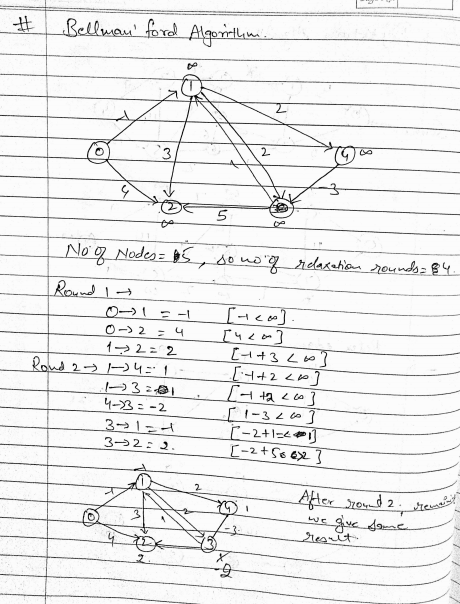 # Bellman' ford Algorithm.
∞
1
-1
2
0
3
1
2
4
∞
4
-3
2
5
∞
∞
No of Nodes = 5, so no of relaxation rounds = 4.
Round 1 →
0→1 = -1 [-1 < ∞].
0→2 = 4 [4 < ∞]
1→2 = 2 [-1+3 < ∞]
Round 2 → 1→4 = 1 [-1+2 < ∞]
1→3 = 1 [-1+2 < ∞]
4→3 = -2 [1-3 < ∞]
3→1 = -1
3→2 = 2.
-1
1
2
-1
4
1
0
3
1
2
-3
4
2
3
2.
-2
After round 2,
we give same
result